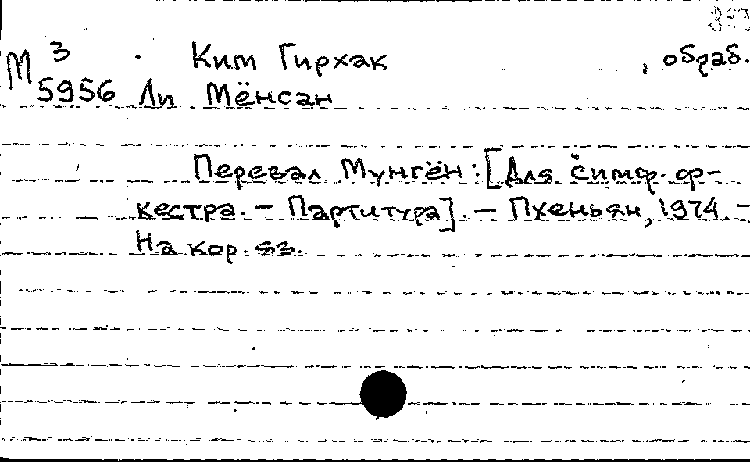 М 3 Ким Гирхак , обраб.
5956 Ли Мёнсан
Перевал Мунгён: [Для симф. ор-
кестра. - Партитура]. - Пхеньян, 1974. -
На кор. яз.